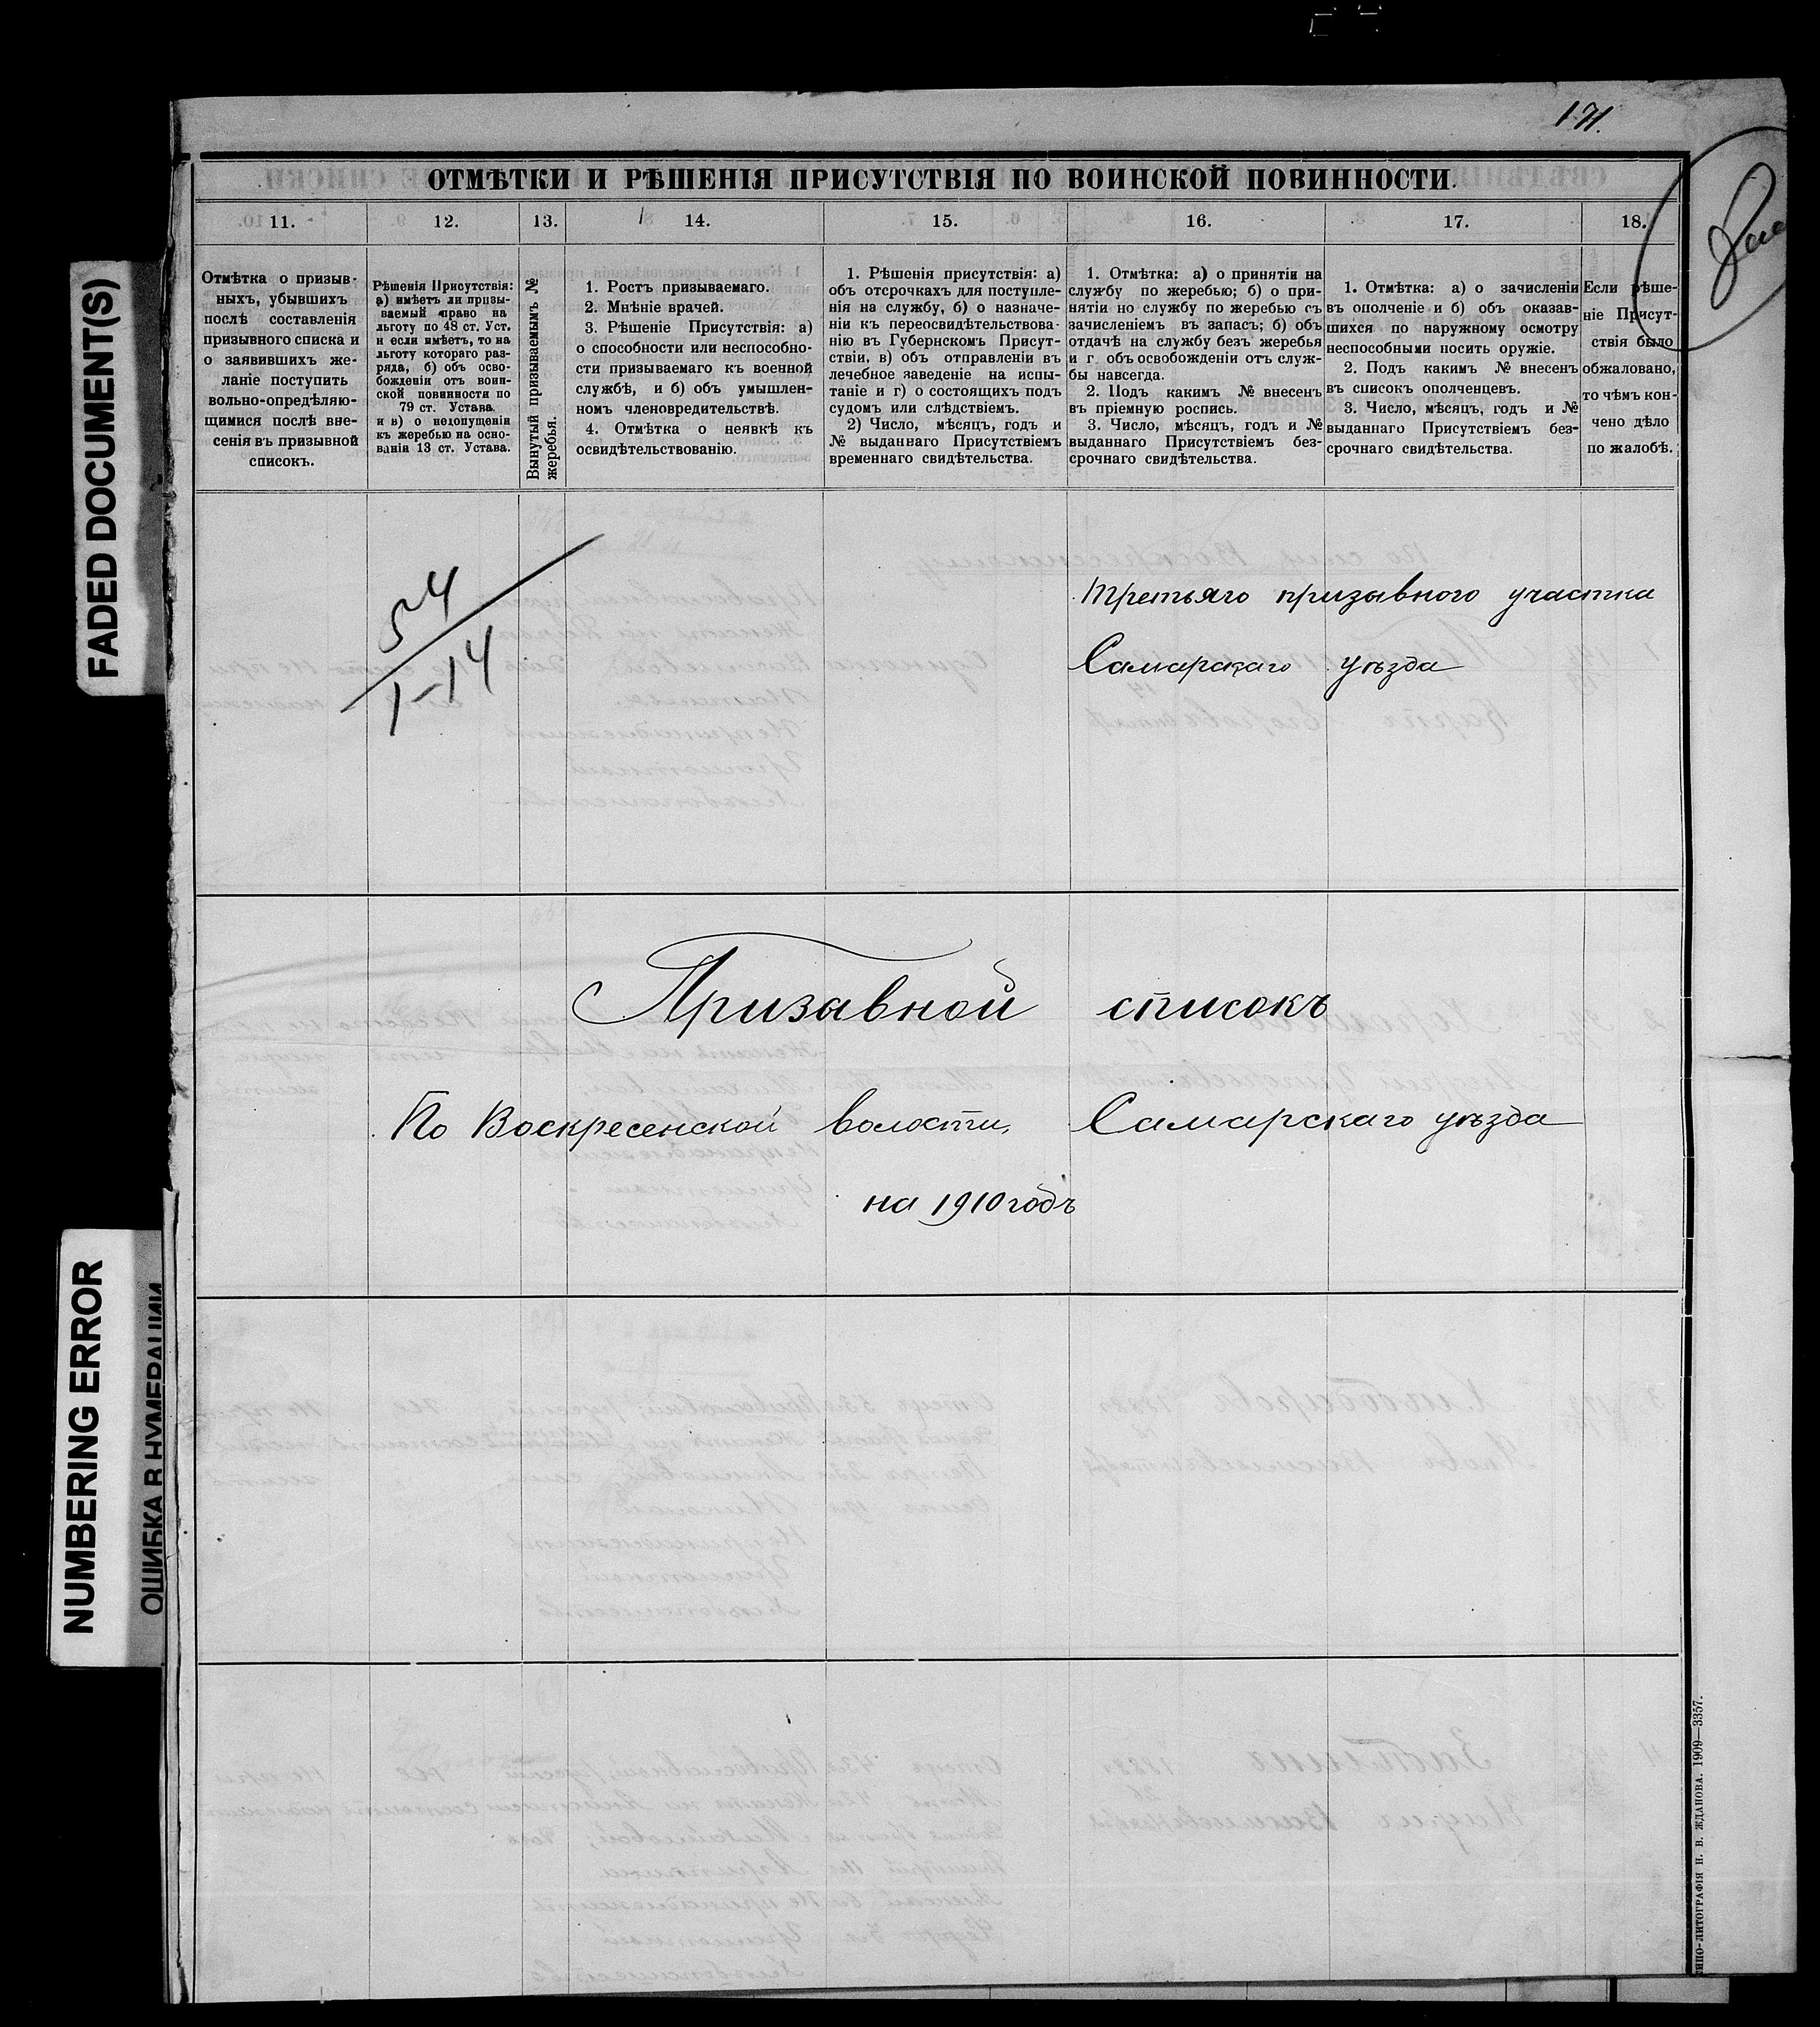 171.
ОТМѢТКИ И РѢШЕНІЯ ПРИСУТСТВІЯ ПО ВОИНСКОЙ ПОВИННОСТИ.
11.
12.
13.
14.
15.
16.
17.
18.
Отмѣтка о призыв-
ныхъ, убывшихъ
послѣ составленія
призывного списка и
о заявившихъ же-
ланіе поступить
вольно-опредѣляю-
щимися послѣ вне-
сенія въ призывной
списокъ.
Рѣшенія Присутствія:
а) имѣетъ ли призы-
ваемый право на
льготу по 48 ст. Уст.
и если имѣетъ, то на
льготу котораго раз-
ряда, б) объ осво-
божденіи отъ воин-
ской повинности по
79 ст. Устава
и в) о недопущеніи
къ жеребью на осно-
ваніи 13 ст. Устава.
Вынутый призываемымъ №
жеребья.
1. Ростъ призываемаго.
2. Мнѣніе врачей.
3. Рѣшеніе Присутствія: а)
о способности или неспособно-
сти призываемаго къ военной
службѣ, и б) объ умышлен-
номъ членовредительствѣ.
4. Отмѣтка о неявкѣ къ
освидѣтельствованію.
1. Рѣшенія присутствія: а)
объ отсрочкахъ для поступле-
нія на службу, б) о назначе-
ніи къ переосвидѣтельствова-
нію въ Губернскомъ Присут-
ствіи, в) объ отправленіи въ
лечебное заведеніе на испы-
таніе и г) о состоящихъ подъ
судомъ или слѣдствіемъ.
2) Число, мѣсяцъ, годъ и
№ выданнаго Присутствіемъ
временнаго свидѣтельства.
1. Отмѣтка: а) о принятіи на
службу по жеребью; б) о при-
нятіи но службу по жеребью съ
зачисленіемъ въ запасъ; б) объ
отдачѣ на службу безъ жеребья
и г объ освобожденіи отъ служ-
бы навсегда.
2. Подъ какимъ № внесенъ
въ пріемную роспись.
3. Число, мѣсяцъ, годъ и №
выданнаго Присутствіемъ без-
срочнаго свидѣтельства.
1. Отмѣтка: а) о зачисленіи
въ ополченіе и б) объ оказав-
шихся по наружному осмотру
неспособными носить оружіе.
2. Подъ какимъ № внесенъ
въ списокъ ополченцевъ.
3. Число, мѣсяцъ, годъ и №
выданнаго Присутствіемъ без-
срочнаго свидѣтельства.
Если рѣше-
ніе Присут-
ствія было
обжаловано,
то чѣмъ кон-
чено дѣло
по жалобѣ.
54
1-14
Третьяго призывного участка
Самарскаго уѣзда
Призывной списокъ
По Воскресенской волости, Самарскаго уѣзда
на 1910 годъ
FADED DOCUMENT(S)
NUMBERING ERROR
ОШИБКА В НУМЕРАЦИИ
ТИПО-ЛИТОГРАФІЯ Н. В. ЖДАНОВА. 1909—3357.